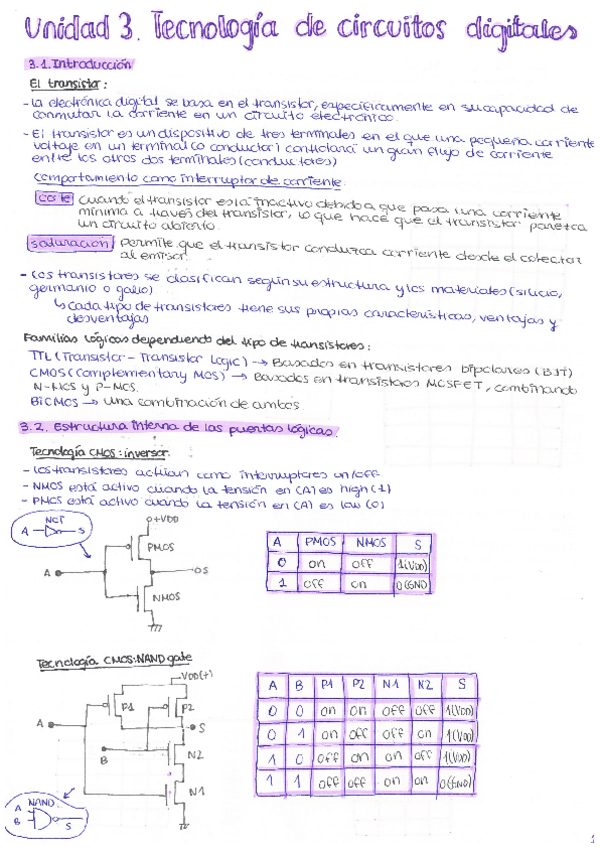 Unidad 3. Tecnología de circuitos digitales
3.1. Introducción
El transistor:
- La electrónica digital se basa en el transistor, específicamente en su capacidad de
conmutar la corriente en un circuito electrónico.
- El transistor es un dispositivo de tres terminales en el que una pequeña corriente
voltaje en un terminal (o conductor) controlará un gran flujo de corriente
entre los otros dos terminales (conductores)
Comportamiento como interruptor de corriente.
corte cuando el transistor está inactivo debido a que pasa una corriente
mínima a través del transistor, lo que hace que el transistor parezca
un circuito abierto.
saturación permite que el transistor conduzca corriente desde el colector
al emisor.
- Los transistores se clasifican según su estructura y los materiales (silicio,
germanio o galio)
↳ Cada tipo de transistores tiene sus propias características, ventajas y
desventajas
Familias lógicas dependiendo del tipo de transistores:
TTL (Transistor - Transistor Logic) → Basados en transistores bipolares (BJT)
CMOS (Complementary MOS) → Basados en transistores MOSFET, combinando
N-MOS y P-MOS.
BiCMOS → una combinación de ambos
3.2. Estructura interna de las puertas lógicas.
Tecnología CMOS: inversor.
- Los transistores actúan como interruptores on/off
- NMOS está activo cuando la tensión en (A) es high (1)
- PMOS está activo cuando la tensión en (A) es low (0)
NOT
A S
+VDD
PMOS
A S
NMOS
A PMOS NMOS S
0 on off 1(VDD)
1 off on 0(GND)
Tecnología CMOS: NAND gate
VDD(+)
P1 P2
A S
B N2
N1
NAND
A
B S
A B P1 P2 N1 N2 S
0 0 on on off off 1(VDD)
0 1 on off off on 1(VDD)
1 0 off on on off 1(VDD)
1 1 off off on on 0(GND)
1